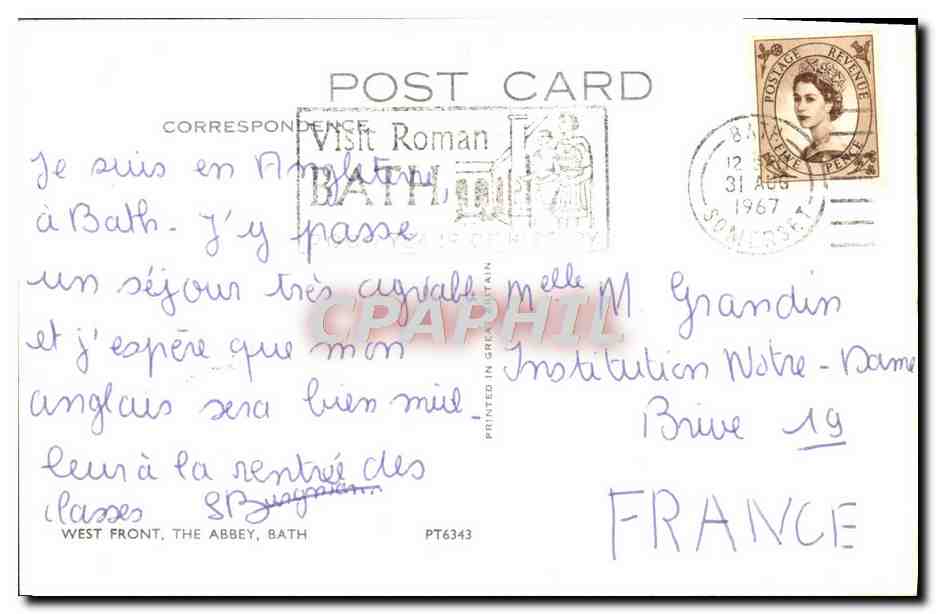 POST CARD
CORRESPONDENCE
Visit Roman
BATH
BA
12
31 AUG
1967
SOMERSET
POSTAGE REVENUE
FIVE PENCE
Je suis en Angleterre
à Bath. J'y passe
un séjour très agréable
et j'espère que mon
anglais sera bien meil-
leur à la rentrée des
classes
WEST FRONT, THE ABBEY, BATH
PT6343
PRINTED IN GREAT BRITAIN
CPAPHIL
Melle M. Grandin
Institution Notre-Dame
Brive 19
FRANCE